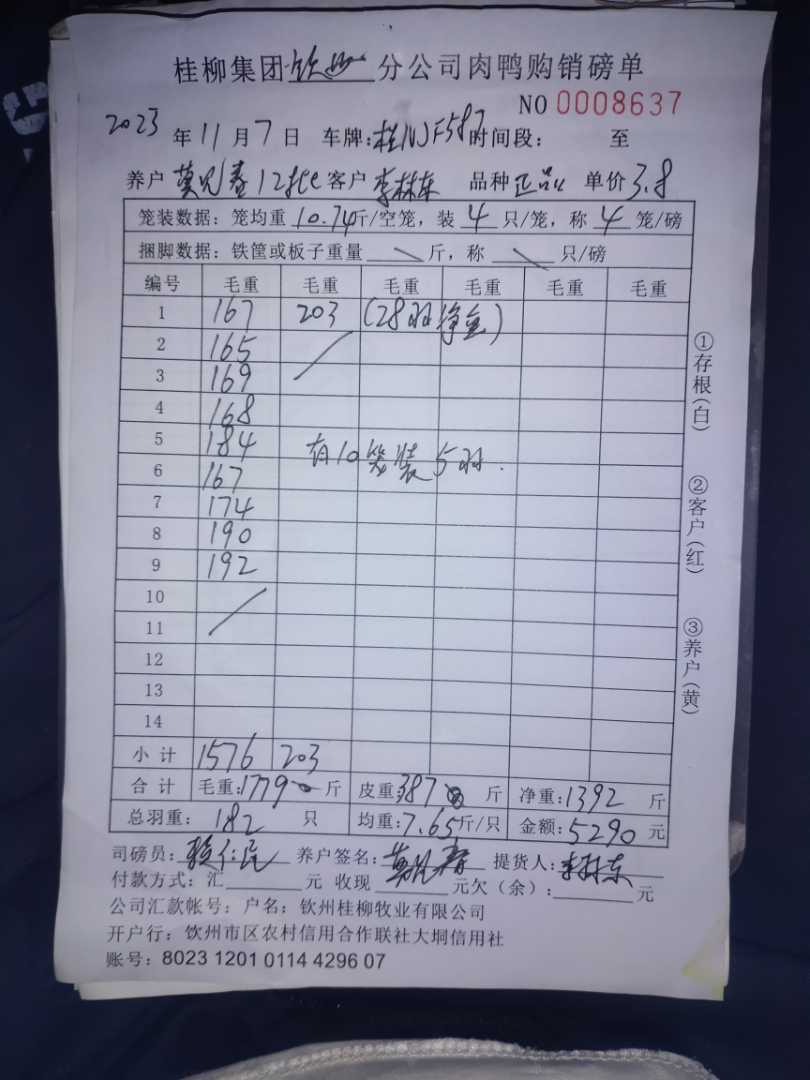 桂柳集团钦州分公司肉鸭购销磅单
NO 0008637
2023年11月7日 车牌:桂NJF587时间段: 至
养户 莫凡春12批 客户 李林东 品种 正品 单价3.8
笼装数据: 笼均重10.74斤/空笼, 装4只/笼, 称4笼/磅
捆脚数据: 铁筐或板子重量 斤, 称 只/磅
编号 毛重 毛重 毛重 毛重 毛重 毛重
1 167 203 (28羽净重)
2 165
3 169
4 168
5 184 有10笼装5羽.
6 167
7 174
8 190
9 192
10
11
12
13
14
小计 1576 203
合计 毛重:1779斤 皮重:387斤 净重:1392斤
总羽重: 182 只 均重:7.65斤/只 金额:5290元
司磅员: 仁民 养户签名: 莫凡春 提货人: 李林东
付款方式: 汇 元 收现 元欠(余): 元
公司汇款帐号: 户名: 钦州桂柳牧业有限公司
开户行: 钦州市区农村信用合作联社大垌信用社
账号: 8023 1201 0114 4296 07
①存根(白)
②客户(红)
③养户(黄)